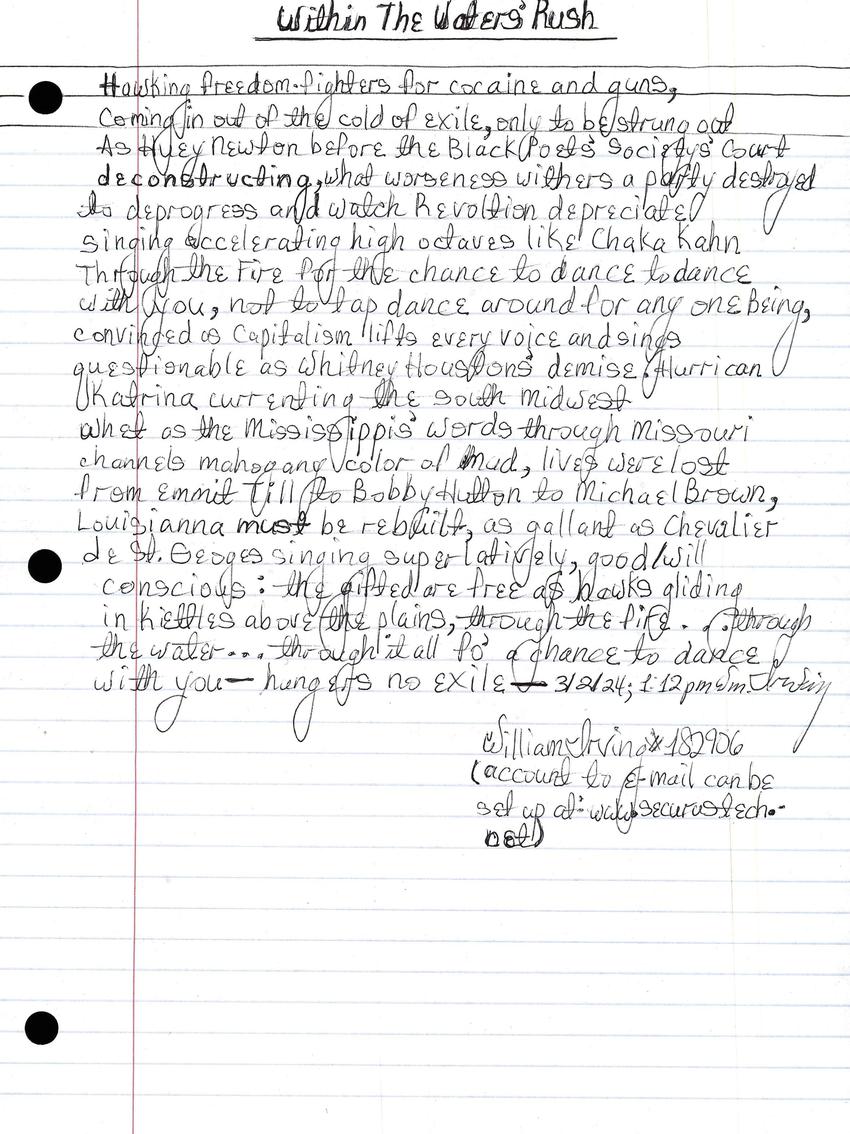 Within The Waters' Rush
Hawking freedom-fighters for cocaine and guns,
Coming in out of the cold of exile, only to be strung out
As Huey Newton before the Black Poets' Society's Court
deconstructing, what worseness withers a party destroyed
to deprogress and watch Revoltion depreciate
singing accelerating high octaves like Chaka Kahn
Through the Fire for the chance to dance to dance
with you, not to tap dance around for any one Being,
convinced as Capitalism lifts every voice and sings
questionable as Whitney Houstons' demise. Hurrican
Katrina currenting the south midwest
whet as the Mississippis' words through Missouri
channels mahogany color of mud, lives were lost
from Emmit Till to Bobby Hutton to Michael Brown,
Louisianna must be rebuilt, as gallant as Chevalier
de St. Geoges singing superlatively, good will
conscious: the gifted are free as hawks gliding
in kiettles above the plains, through the fire... through
the water... through it all fo' a chance to dance
with you— hungers no exile— 3/2/24; 1:12pm Wm. Irving
William Irving #182906
(account to E-mail can be
set up at: www.securustech.-
net)